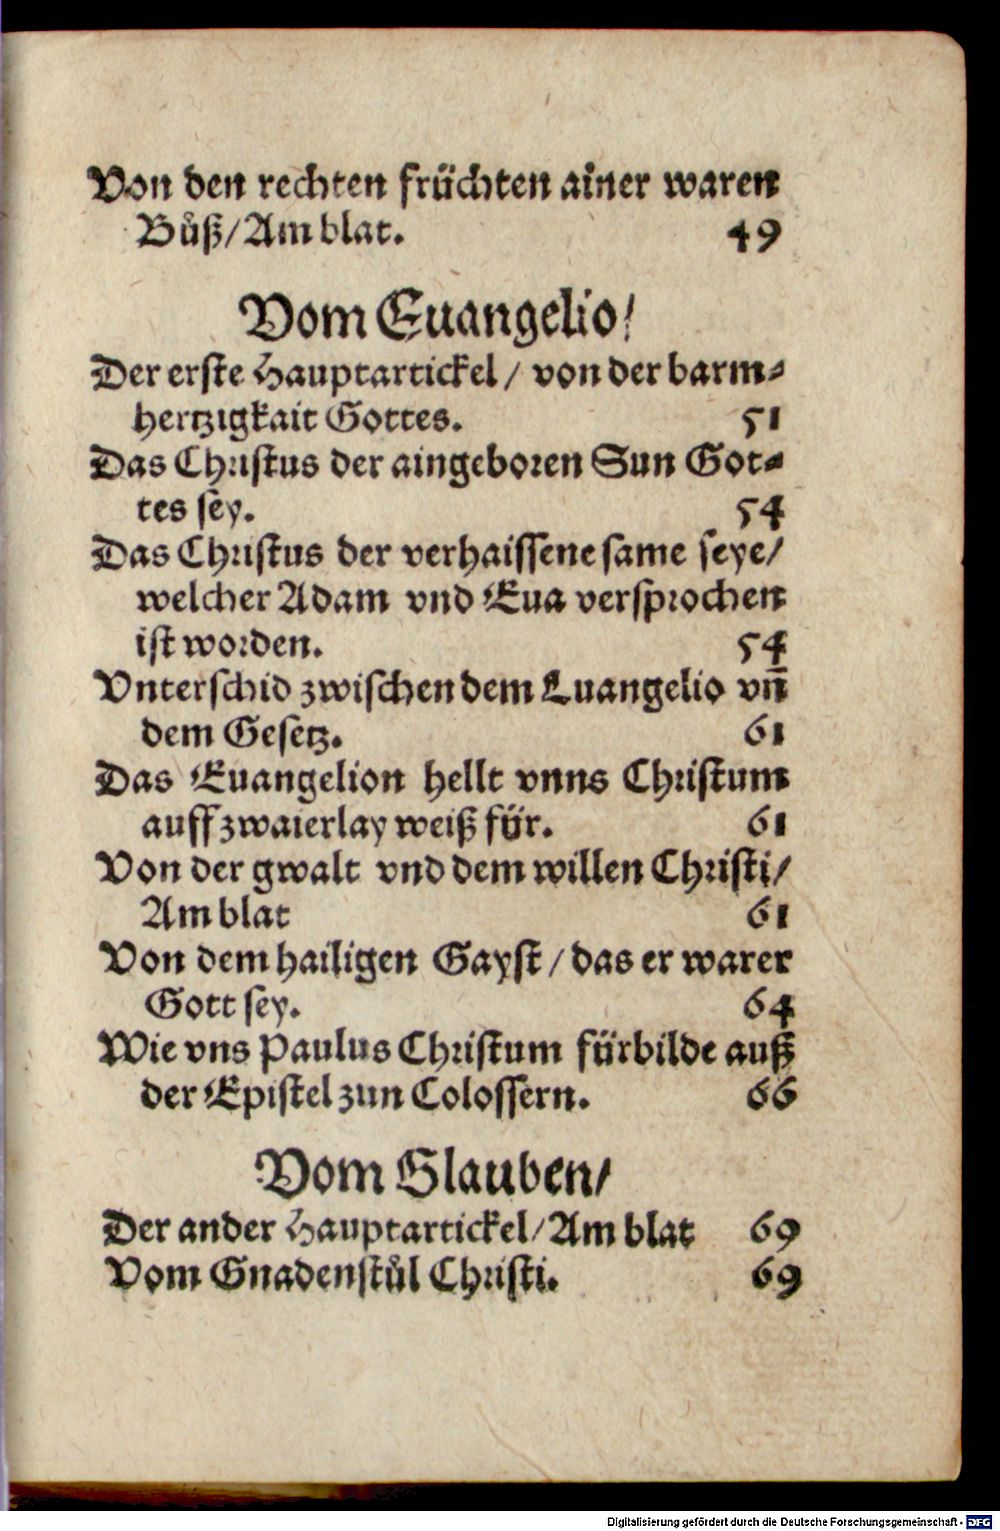 Von den rechten früchten ainer waren
Bůß/Am blat. 49
Vom Euangelio/
Der erste Hauptartickel / von der barm⸗
hertzigkait Gottes. 51
Das Christus der aingeboren Sun Got⸗
tes sey. 54
Das Christus der verhaissene same seye/
welcher Adam vnd Eua versprochen
ist worden. 54
Vnterschid zwischen dem Euangelio vñ
dem Gesetz. 61
Das Euangelion hellt vnns Christum
auff zwaierlay weiß für. 61
Von der gwalt vnd dem willen Christi/
Am blat 61
Von dem hailigen Gayst / das er warer
Gott sey. 64
Wie vns Paulus Christum fürbilde auß
der Epistel zun Colossern. 66
Vom Glauben/
Der ander Hauptartickel/Am blat 69
Vom Gnadenstůl Christi. 69
Digitalisierung gefördert durch die Deutsche Forschungsgemeinschaft - DFG